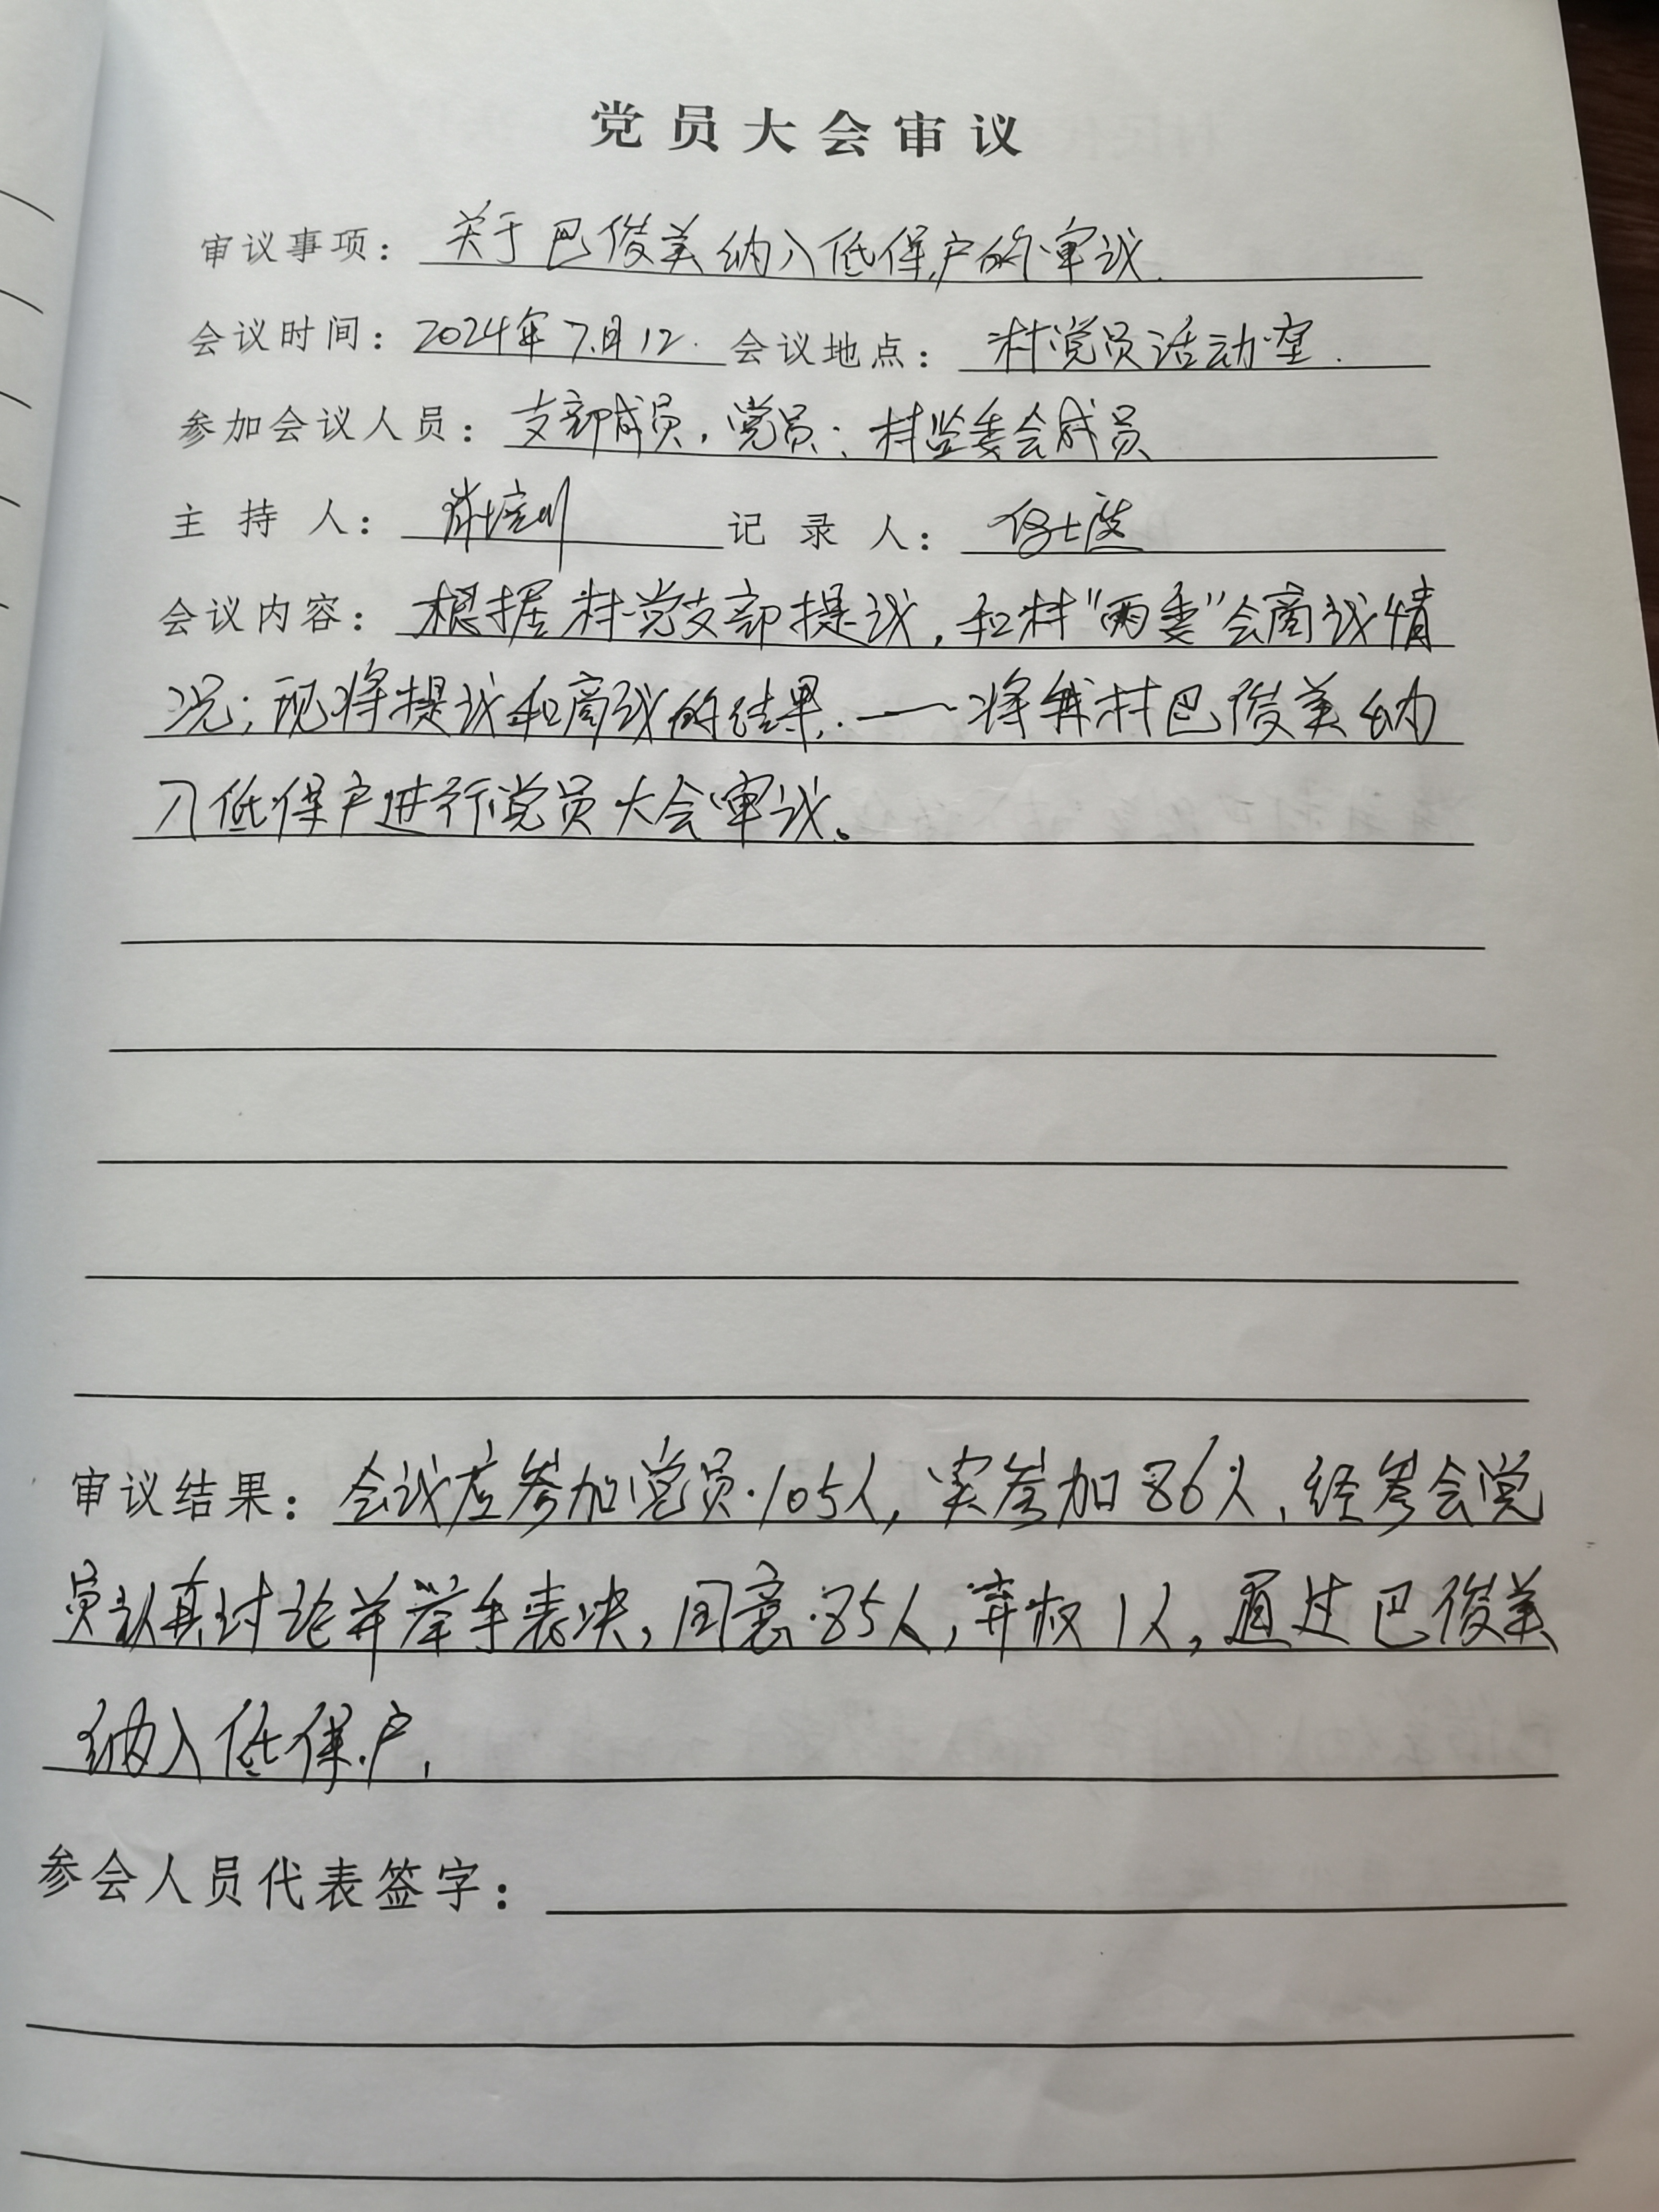 党员大会审议
审议事项：关于巴俊美纳入低保户的审议.
会议时间：2024年7月12. 会议地点：村党员活动室.
参加会议人员：支部成员，党员；村监委会成员
主持人： 记录人：
会议内容：根据村党支部提议，和村"两委"会商议情
况；现将提议和商议的结果.——将我村巴俊美纳
入低保户进行党员大会审议。
审议结果：会议应参加党员105人，实参加86人，经参会党
员认真讨论并举手表决，同意85人，弃权1人，通过巴俊美
纳入低保户.
参会人员代表签字：